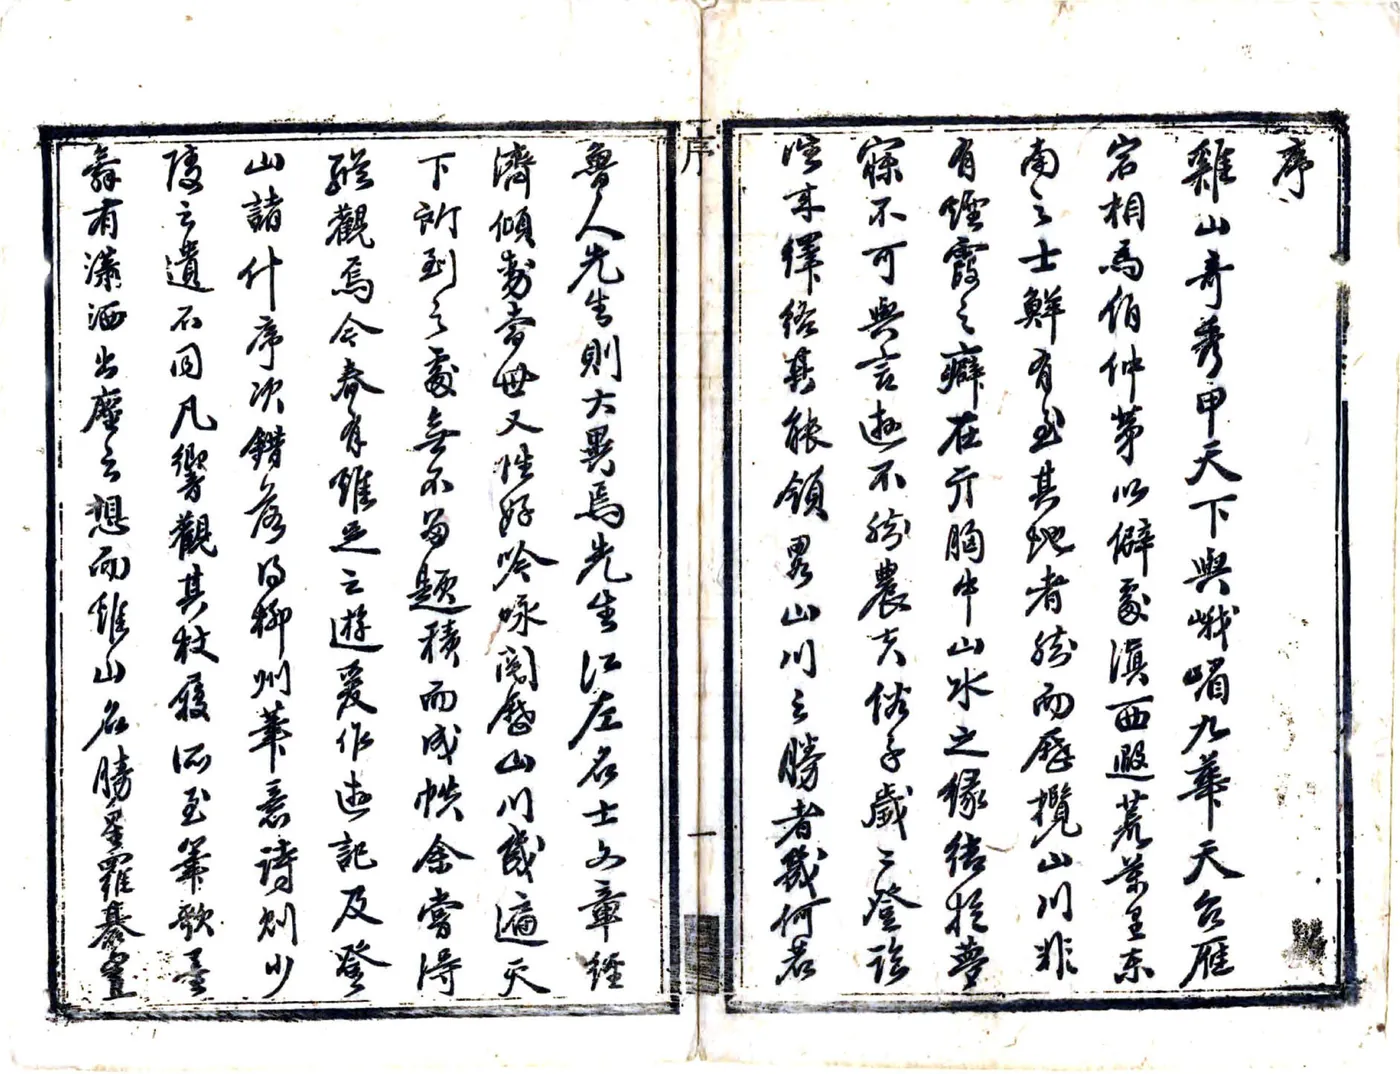 序
雞山奇秀甲天下與峨嵋九華天台雁
宕相為伯仲第以僻處滇西遐荒萬里東
南之士鮮有至其地者然而歷攬山川非
有煙霞之癖在亓胸中山水之緣結於夢
寐不可與言遊不然農夫俗子歲之登臨
往來繹絡其能領略山川之勝者幾何若
魯人先生則大異焉先生江左名士文章經
濟傾動當世又性好吟咏閱歷山川幾遍天
下所到之處無不留題積而成帙余嘗得
縱觀焉今春有雞足之遊爰作遊記及登
山諸什序次錯落得柳州筆意詩則少
陵之遺不同凡響觀其杖履所至筆歌墨
舞有瀟洒出塵之想而雞山名勝星羅棊置
序
一